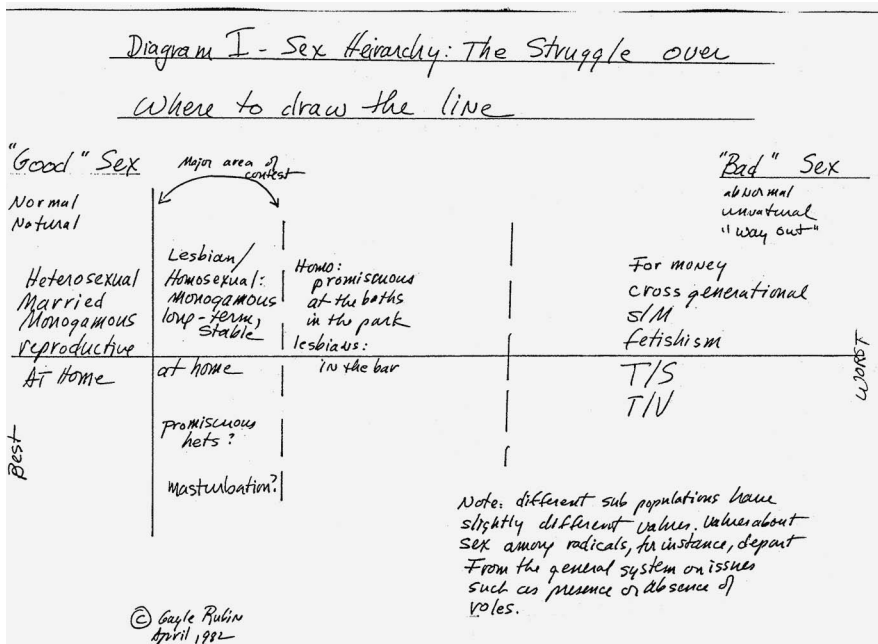 Diagram I - Sex Heirarchy: The Struggle over
Where to draw the line
"Good" Sex
Normal
Natural
Heterosexual
Married
Monogamous
reproductive
AT Home
Best
Major area of
contest
Lesbian/
Homosexual:
Monogamous
long-term,
stable
at home
promiscuous
hets?
masturbation?
Homo:
promiscuous
at the baths
in the park
lesbians:
in the bar
"Bad" Sex
abnormal
unnatural
"way out"
For money
cross generational
S/M
fetishism
T/S
T/V
WORST
Note: different sub populations have
slightly different values. Values about
sex among radicals, for instance, depart
From the general system on issues
such as presence or absence of
roles.
© Gayle Rubin
April, 1982